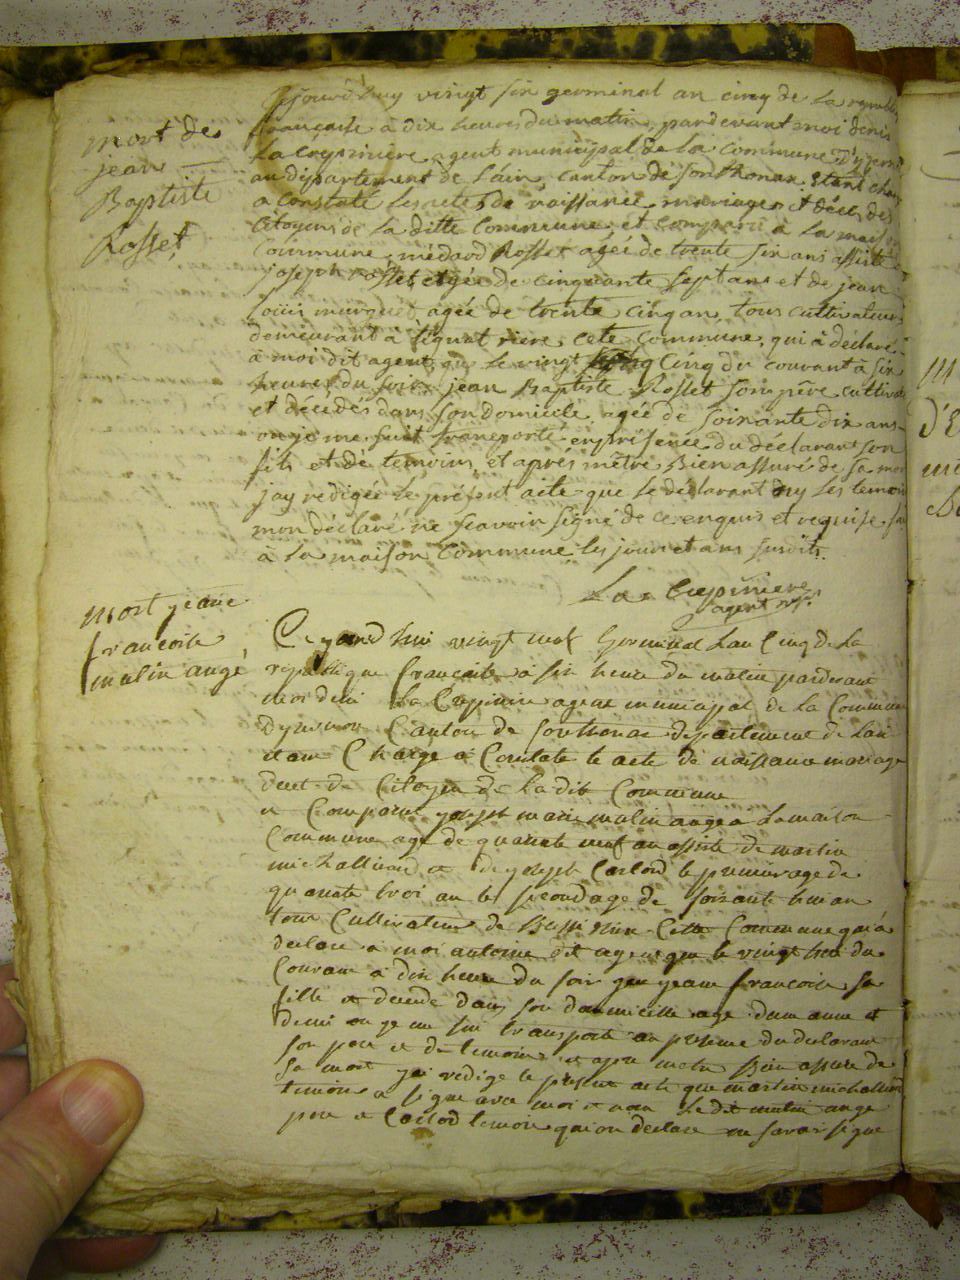 mort de
jean
Baptiste
Rosset
jourd'huy vingt six germinal an cinq de la
francaise à dix heures du matin, pardevant moi denis
La Cupiniere agent municipal de la commune
au département de l'ain, canton de Sonthonax
a constaté les actes de naissance, mariages et décès des
Citoyens de la ditte Commune, et comparu à la
Commune, médard Rosset agée de trente six ans assisté
joseph Rosset agée de cinquante sept ans et de jean
Louis agée de trente cinq an, tous cultivateurs
demeurant à rière cete commune, qui à déclaré
à moi dit agent que le vingt cinq du courant à six
heures du soir jean Baptiste Rosset son père
et décédés dans son domicile, agée de soixante dix ans
ou je me suit transporté en présence du déclarant son
fils et de temoins, et après m'être Bien assuré de sa
jay redigée le présent acte que le déclarant ny les
mon déclaré ne scavoir signé de ce enquis et requise
à la maison Commune les jours et ans susdits.
La Cupiniere
agent
mort jeane
francoise
mulin ange
vingt Germinal Lan Cinq de la
republique francaise à six heure du matin pardevant
moi deni La Cupinire agent municipal de la Commune
Canton de Sonthonax departement de Lain
etant Charge à Constate le acte de naissance mariage
de Citoyen de la dit Commune
a Comparut joseph marie mulin ange a la maison
Commune age de quarante neuf an assiste de martin
michallivard et de joseph Carlod le premier age de
quarante troi an le second age de soixante
tous Cultivateur de Cette Commune qui à
declare a moi dit agent que le vingt du
Couran à dix heure du soir jeane francoise sa
fille et decede dans son domicille age dune anne et
demi ou je me sui transporte an presence du declarant
son pere et de temoin et apre metre Bien assure de
sa mort jai redige le present acte que martin
temoin a signe avec moi et non le dit mulin ange
pere et Carlod temoin qui on declare ne savoir signe